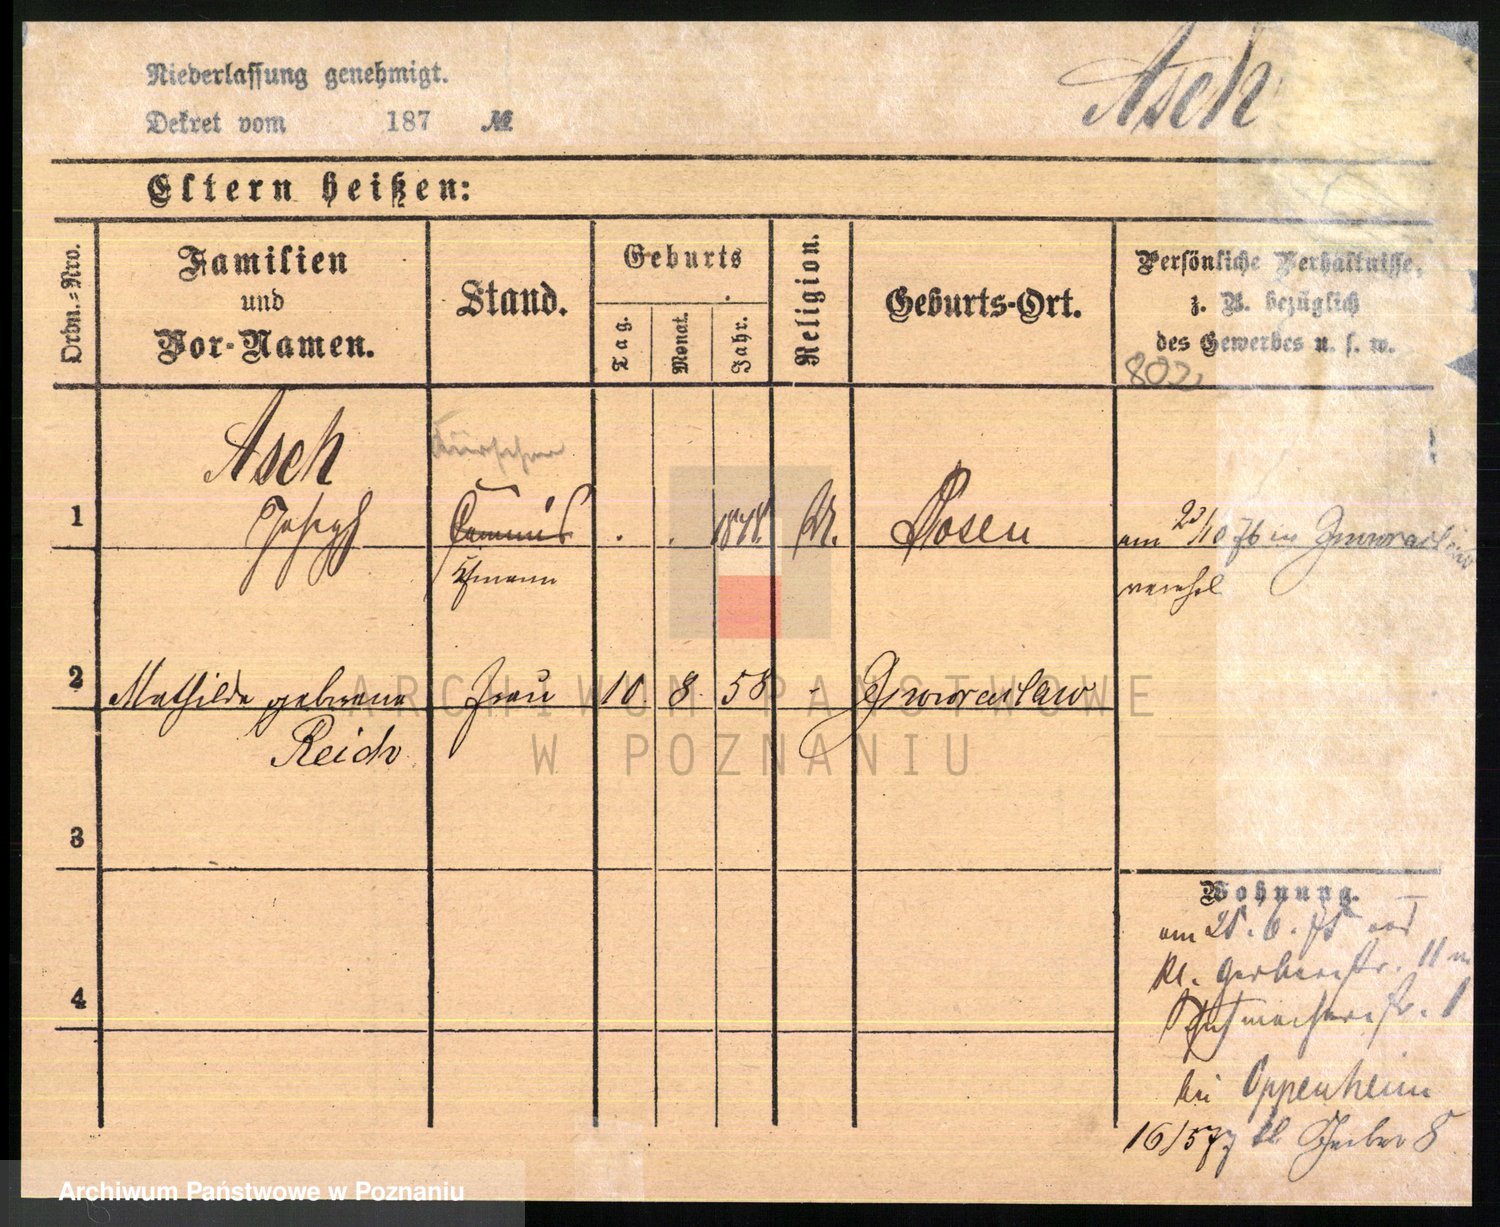 Niederlassung genehmigt.
Dekret vom 187 №
Asch
Eltern heißen:
Ordn.=Nro.
Familien
und
Vor-Namen.
Stand.
Geburts
Tag.
Monat.
Jahr.
Religion.
Geburts-Ort.
Persönliche Verhältnisse,
z. B. bezüglich
des Gewerbes u. s. w.
Asch
Kürschner
1 Joseph Commis . . M. Posen am 23/10 76 in Inowraclaw
2 Mathilde geborene Frau 10 8. 58 - Inowraclaw
Reich
3
Wohnung.
am 25. 6. 75 von
kl. Gerberstr. 11 n
4
bei Oppenheim
16/5 77 kl Gerber 8
ARCHIWUM PAŃSTWOWE
W POZNANIU
Archiwum Państwowe w Poznaniu